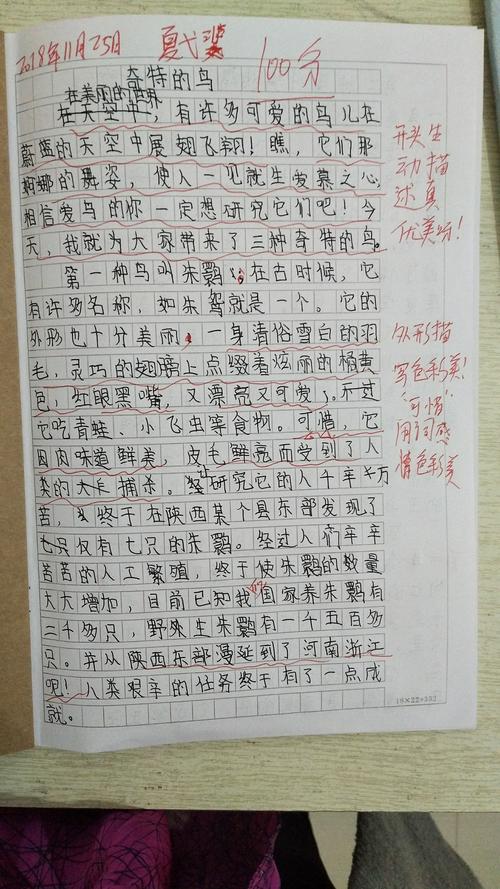 2018年11月25日
100分
奇特的鸟
在美丽的世界
在天空中，有许多可爱的鸟儿在
蔚蓝的天空中展翅飞翔！瞧，它们那
婀娜的舞姿，使人一见就生爱慕之心，
相信爱鸟的你一定想研究它们吧！今
天，我就为大家带来了三种奇特的鸟。
第一种鸟叫朱鹮，在古时候，它
有许多名称，如朱鸳就是一个。它的
外形也十分美丽，一身清俗雪白的羽
毛，灵巧的翅膀上点缀着炫丽的橘黄
色，红眼黑嘴，又漂亮又可爱。不过
它吃青蛙、小飞虫等食物。可惜，它
因肉味道鲜美，皮毛鲜亮而受到了人
类的大捕杀。研究它的人千辛万
苦，终于在陕西某个县东部发现了
七只仅有七只的朱鹮。经过人们辛辛
苦苦的人工繁殖，终于使朱鹮的数量
大大增加，目前已知我国家养朱鹮有
二千多只，野外生朱鹮有一千五百多
只。并从陕西东部漫延到了河南浙江
呢！人类艰辛的任务终于有了一点成
就。
开头生
动描
述真
优美呀！
外形描
写色彩美！
"可惜"
用词感
情色彩美
18×22=332